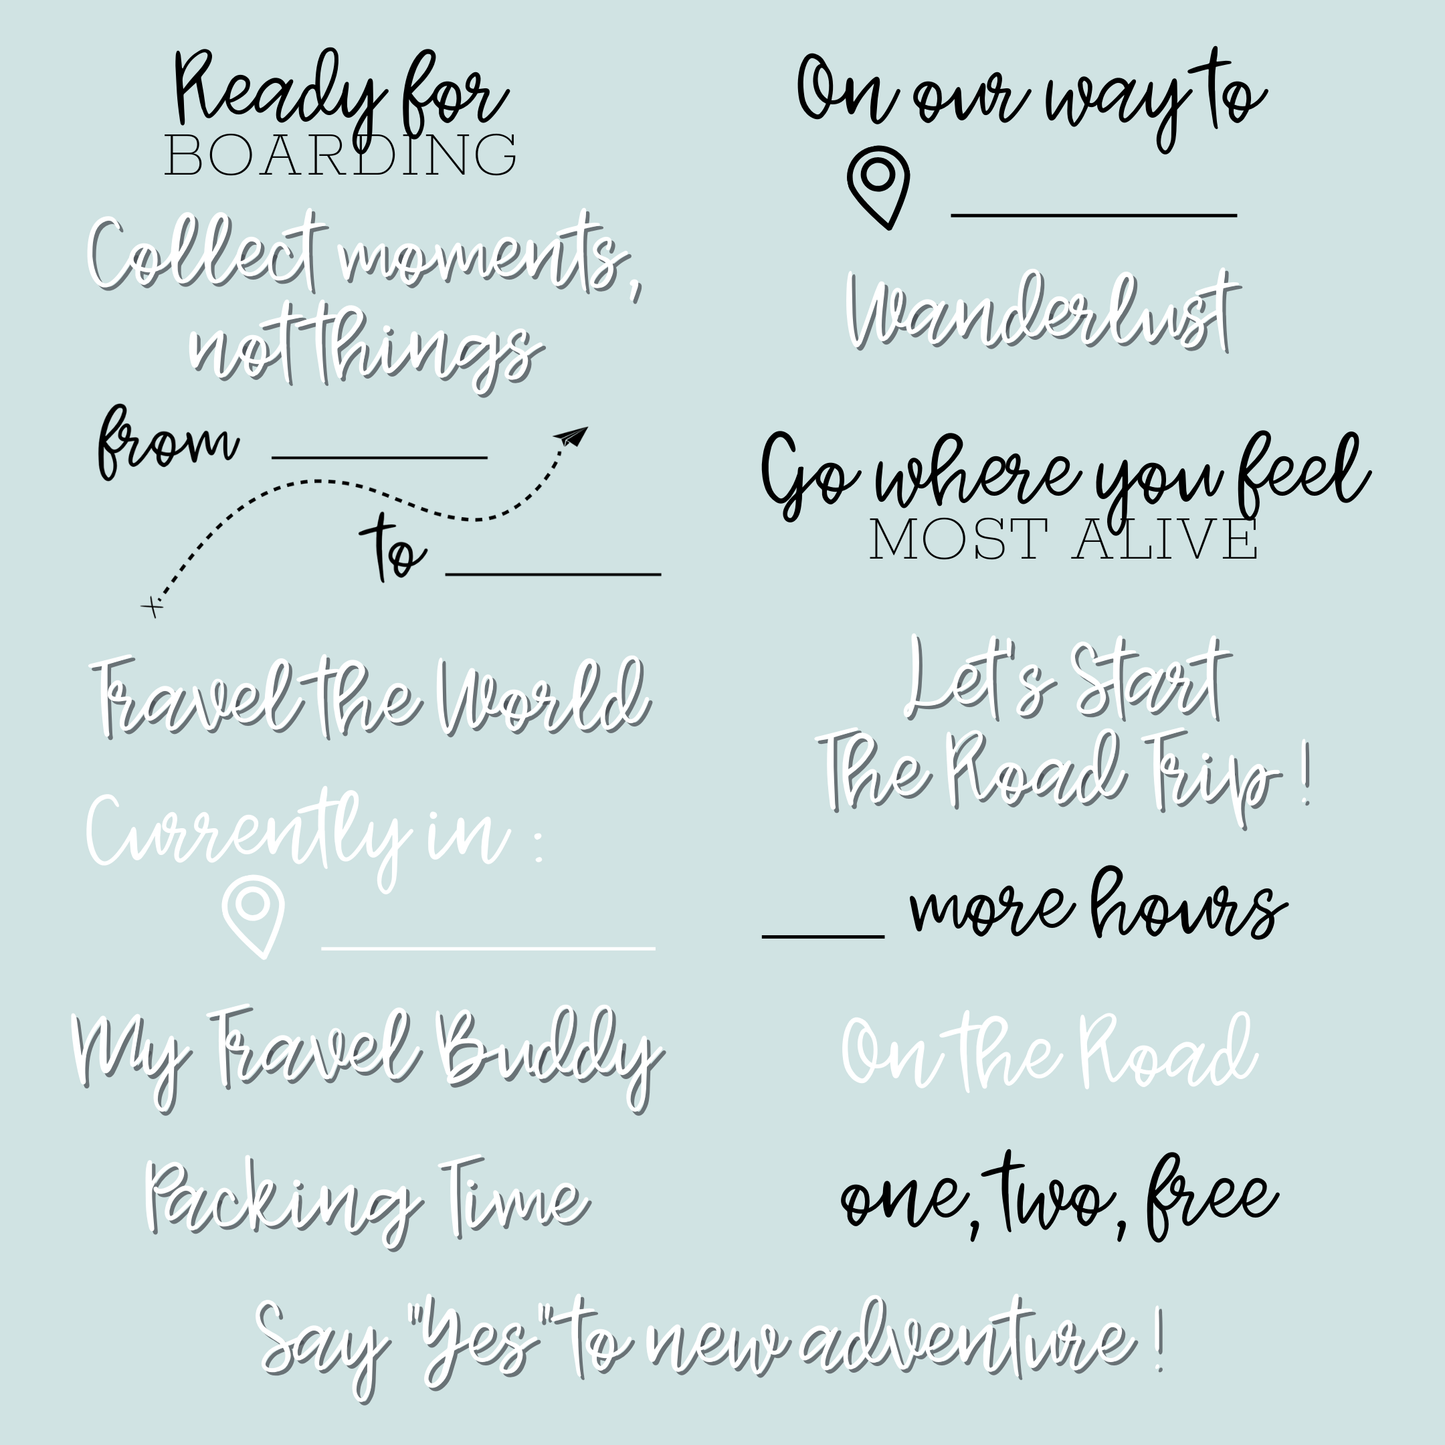 Ready for
BOARDING
Collect moments,
not things
from ________
to ________
Travel the World
Currently in :
________
My Travel Buddy
Packing Time
On our way to
________
Wanderlust
Go where you feel
MOST ALIVE
Let's Start
The Road Trip !
____ more hours
On the Road
one, two, free
Say "Yes" to new adventure !